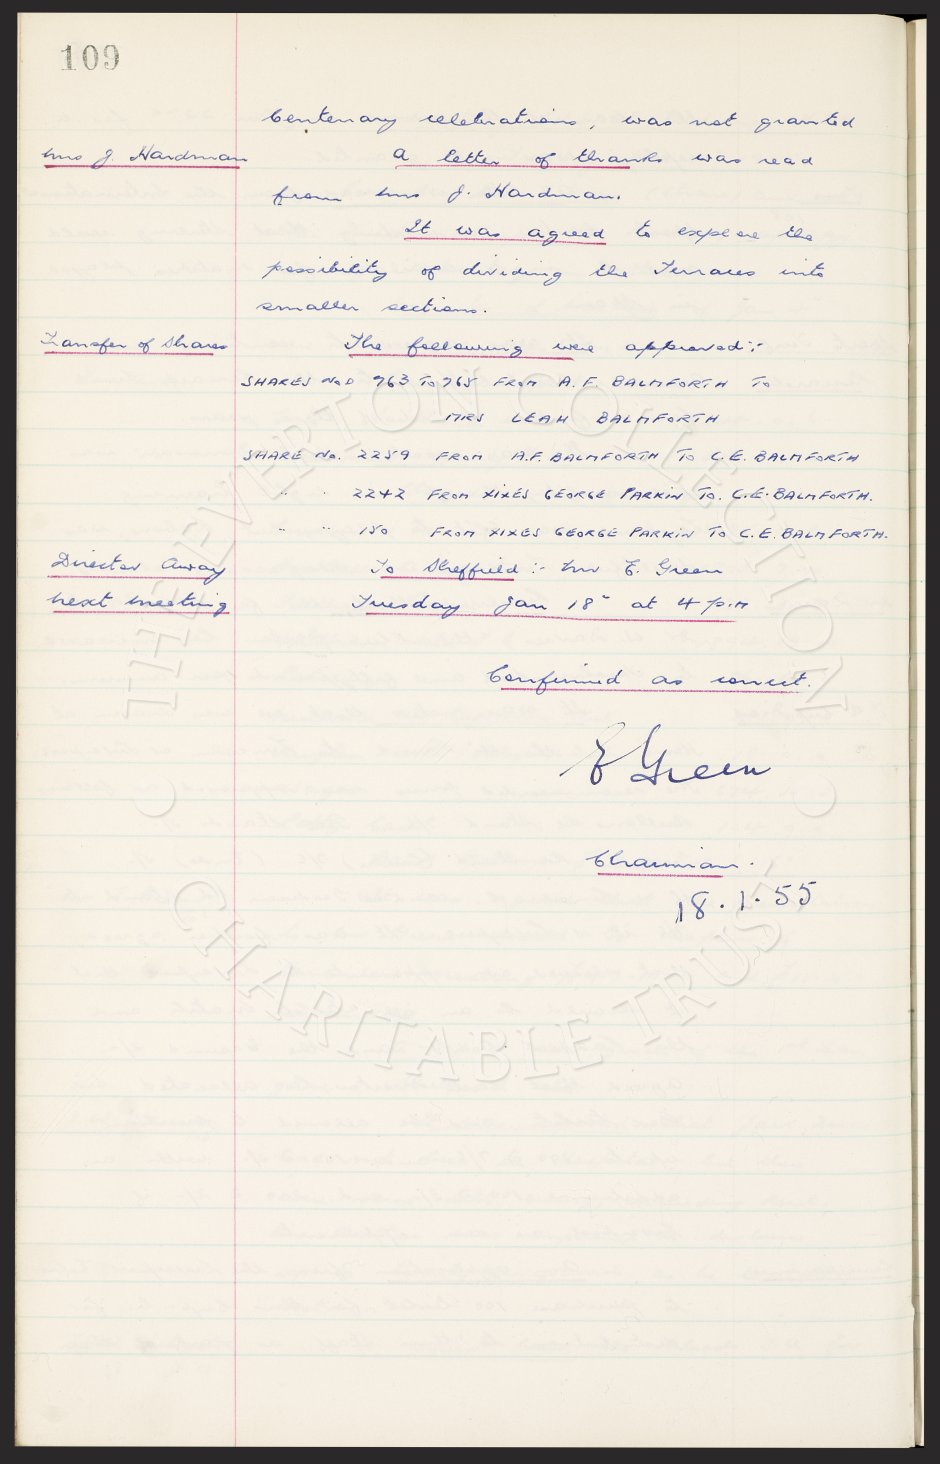 109
Centenary celebrations, was not granted
Mrs J Hardman A letter of thanks was read
from Mrs J. Hardman.
It was agreed to explore the
possibility of dividing the Terraces into
smaller sections.
Transfer of Shares The following were approved :-
SHARES NoD 763 TO 765 FROM A.F. BALMFORTH TO
MRS LEAH BALMFORTH
SHARE No. 2259 FROM A.F. BALMFORTH TO C.E. BALMFORTH
" " 2242 FROM XIXES GEORGE PARKIN TO. C.E. BALMFORTH.
" " 150 FROM XIXES GEORGE PARKIN TO C.E. BALMFORTH.
Director Away To Sheffield :- Mr E. Green
Next Meeting Tuesday Jan 18" at 4 p.m
Confirmed as correct.
E Green
Chairman.
18.1.55
THE EVERTON COLLECTION
CHARITABLE TRUST